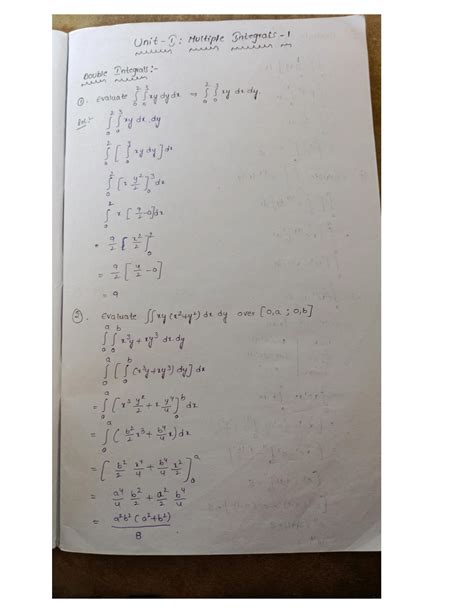 Unit - I : Multiple Integrals - 1
Double Integrals :-
①. Evaluate ∫₀² ∫₀³ xy dy dx → ∫₀² ∫₀³ xy dx dy.
Sol:- ∫₀² ∫₀³ xy dx dy
∫₀² [ ∫₀³ xy dy ] dx
∫₀² [ x y²/2 ]₀³ dx
∫₀² x [ 9/2 - 0 ] dx
= 9/2 [ x²/2 ]₀²
= 9/2 [ 4/2 - 0 ]
= 9
②. Evaluate ∫∫ xy (x²+y²) dx dy over [0,a ; 0,b]
∫₀ᵃ ∫₀ᵇ x³y + xy³ dx dy
∫₀ᵃ [ ∫₀ᵇ (x³y + xy³) dy ] dx
= ∫₀ᵃ [ x³ y²/2 + x y⁴/4 ]₀ᵇ dx
= ∫₀ᵃ ( b²/2 x³ + b⁴/4 x ) dx
= [ b²/2 x⁴/4 + b⁴/4 x²/2 ]₀ᵃ
= a⁴/4 b²/2 + a²/2 b⁴/4
= a²b² (a²+b²) / 8